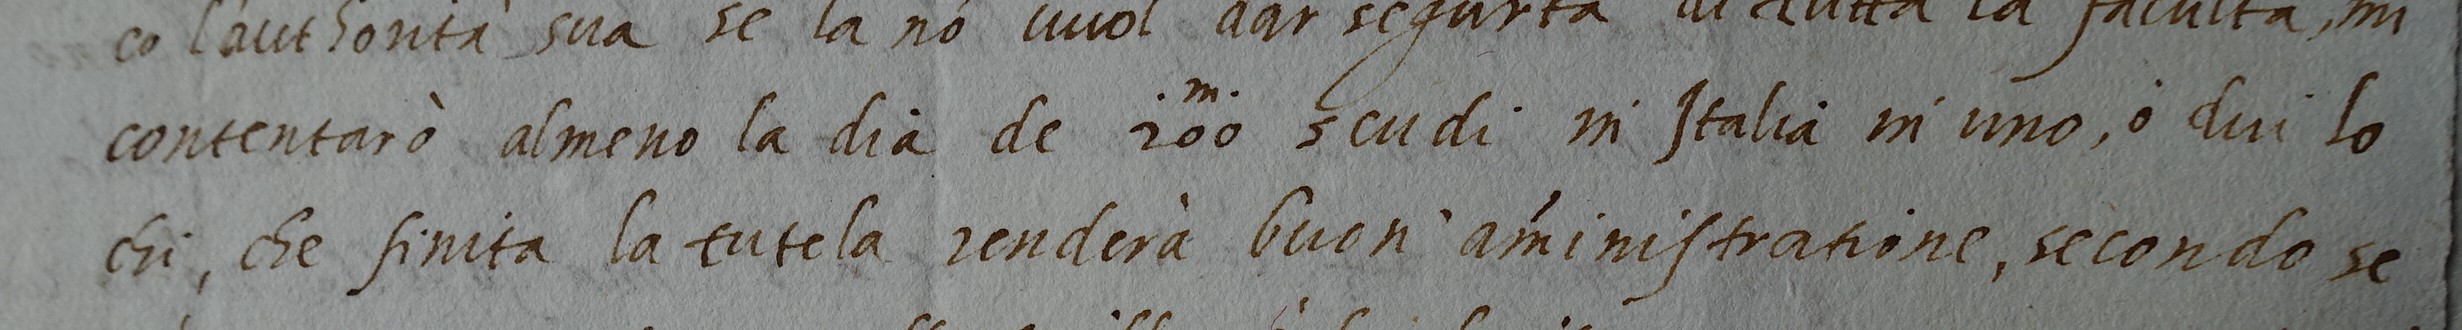 co l'authorità sua se la nō vuol dar segurtà di tutta la facultà, mi
contentarò almeno la dia de 200.m. scudi in Italia in uno, ò dui lo
chi, che finita la tutela renderà buon' am̄inistratione, secondo se